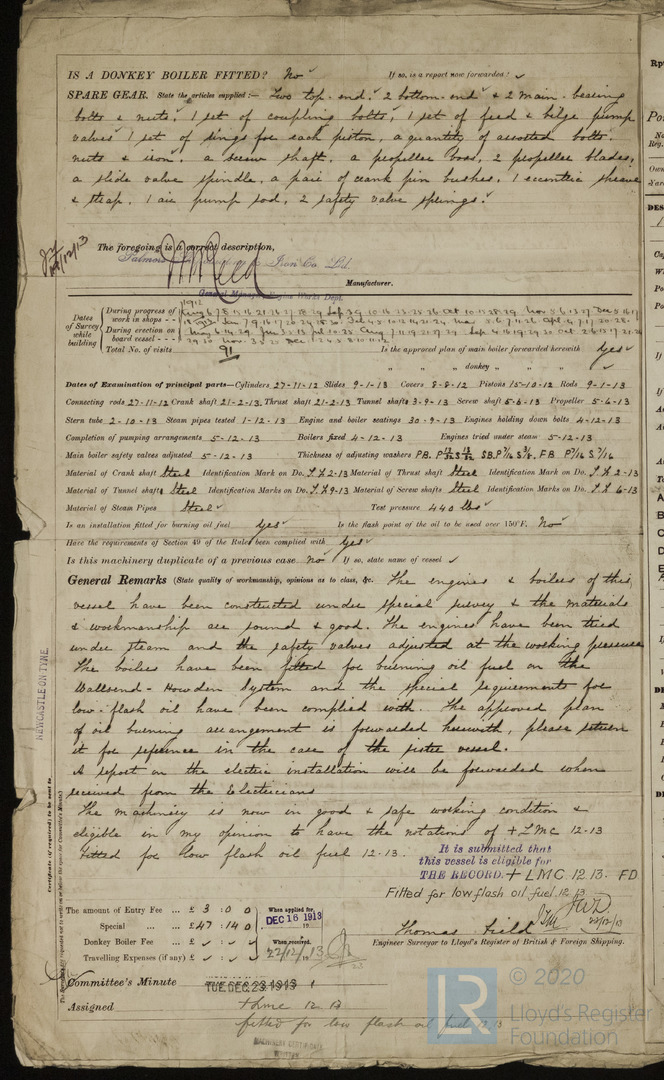 IS A DONKEY BOILER FITTED? No ✓ If so, is a report now forwarded? ✓
SPARE GEAR. State the articles supplied:— Two top-end, 2 bottom-end & 2 main-bearing
bolts & nuts, 1 set of coupling bolts, 1 set of feed & bilge pump
valves 1 set of rings for each piston, a quantity of assorted bolts
nuts & iron, a screw shaft, a propeller boss, 2 propeller blades,
a slide valve spindle, a pair of crank pin bushes, 1 eccentric sheave
& strap, 1 air pump rod, 2 safety valve springs.
The foregoing is a correct description,
Iron Co. Ld.
General Manager, Engine Works Dept. Manufacturer.
Dates of Survey while building
During progress of work in shops - -
During erection on board vessel - - -
Total No. of visits 91
Is the approved plan of main boiler forwarded herewith Yes
" " " donkey " " " ✓
Dates of Examination of principal parts—Cylinders 27-11-12 Slides 9-1-13 Covers 8-8-12 Pistons 15-10-12 Rods 9-1-13
Connecting rods 27-11-12 Crank shaft 21-2-13 Thrust shaft 21-2-13 Tunnel shafts 3-9-13 Screw shaft 5-6-13 Propeller 5-6-13
Stern tube 2-10-13 Steam pipes tested 1-12-13 Engine and boiler seatings 30-9-13 Engines holding down bolts 4-12-13
Completion of pumping arrangements 5-12-13 Boilers fixed 4-12-13 Engines tried under steam 5-12-13
Main boiler safety valves adjusted 5-12-13 Thickness of adjusting washers
Material of Crank shaft Steel Identification Mark on Do. 2-13 Material of Thrust shaft Steel Identification Mark on Do. 2-13
Material of Tunnel shafts Steel Identification Marks on Do. 9-13 Material of Screw shafts Steel Identification Marks on Do. 6-13
Material of Steam Pipes Steel ✓ Test pressure 440 lbs
Is an installation fitted for burning oil fuel Yes Is the flash point of the oil to be used over 150°F. No
Have the requirements of Section 49 of the Rules been complied with Yes
Is this machinery duplicate of a previous case No If so, state name of vessel ✓
General Remarks (State quality of workmanship, opinions as to class, &c. The engines & boilers of this
vessel have been constructed under special survey & the materials
& workmanship are sound & good. The engines have been tried
under steam and the safety valves adjusted at the working pressure
The boilers have been fitted for burning oil fuel on the
Wallsend-Howden System and the special requirements for
low-flash oil have been complied with. The approved plan
of oil burning arrangement is forwarded herewith, please return
it for reference in the case of the sister vessel.
A report on the electric installation will be forwarded when
received from the Electricians
The machinery is now in good & safe working condition &
eligible in my opinion to have the notations of + LMC 12-13
fitted for low flash oil fuel 12-13.
It is submitted that
this vessel is eligible for
THE RECORD. + LMC 12.13. FD
Fitted for low flash oil fuel 12.13
22/12/13
NEWCASTLE-ON-TYNE.
Certificate (if required) to be sent to
The amount of Entry Fee .. £ 3 : 0 : 0 When applied for,
Special .. £ 47 : 14 : 0 DEC 16 1913
Donkey Boiler Fee .. £ When received,
Travelling Expenses (if any) £ 22/12/13
Thomas Field
Engineer Surveyor to Lloyd's Register of British & Foreign Shipping.
Committee's Minute TUE. DEC. 23. 1913
Assigned + LMC 12.13
fitted for low flash oil fuel 12.13
MACHINERY CERTIFICATE
WRITTEN
© 2020
LR
Lloyd's Register
Foundation